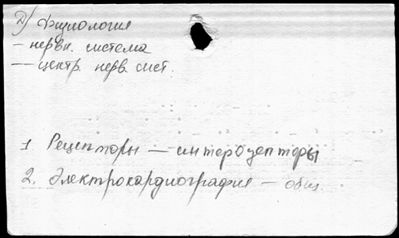 Д) Физиология
- нервн. система
— центр. нерв. сист.
1 Рецепторы — интероцепторы
2. Электрокардиография — общ.